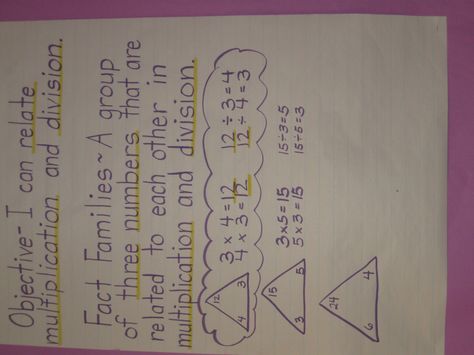 Objective~ I can relate
multiplication and division.
Fact Families~ A group
of three numbers that are
related to each other in
multiplication and division.
12
4 3
3 × 4 = 12 12 ÷ 3 = 4
4 × 3 = 12 12 ÷ 4 = 3
15
3 5
3×5=15 15÷3=5
5×3=15 15÷5=3
24
6 4